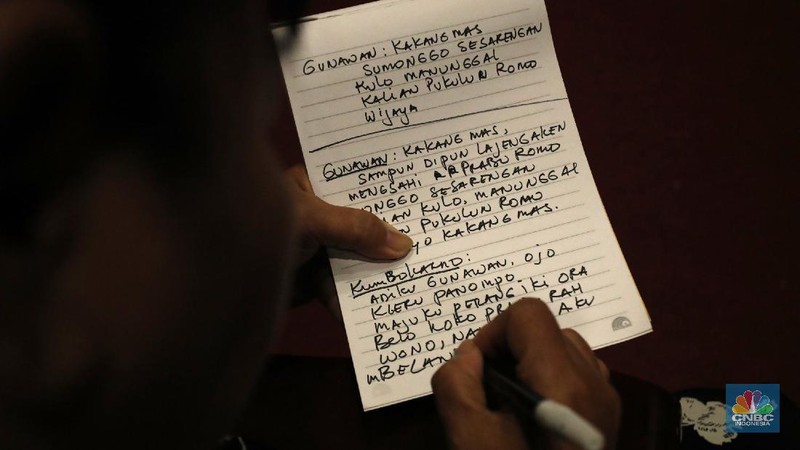 GUNAWAN: KAKANG MAS
SUMONGGO SESARENGAN
KULO MANUNGGAL
KALIAN PUKULUN ROMO
WIJAYA
GUNAWAN: KAKANG MAS,
SAMPUN DIPUN LAJENGAKEN
MENGSAHI PRABU ROMO
ONGGO SESARENGAN
KULO, MANUNGGAL
PUKULUN ROMO
KAKANG MAS.
KUMBOKARNO:
ADIKU GUNAWAN, OJO
KLERU PANOMPO.
MAJUKU PERANG IKI ORA
BELO KOKO PR RAH
WONO, NA AKU
MBELAN
CNBC
INDONESIA